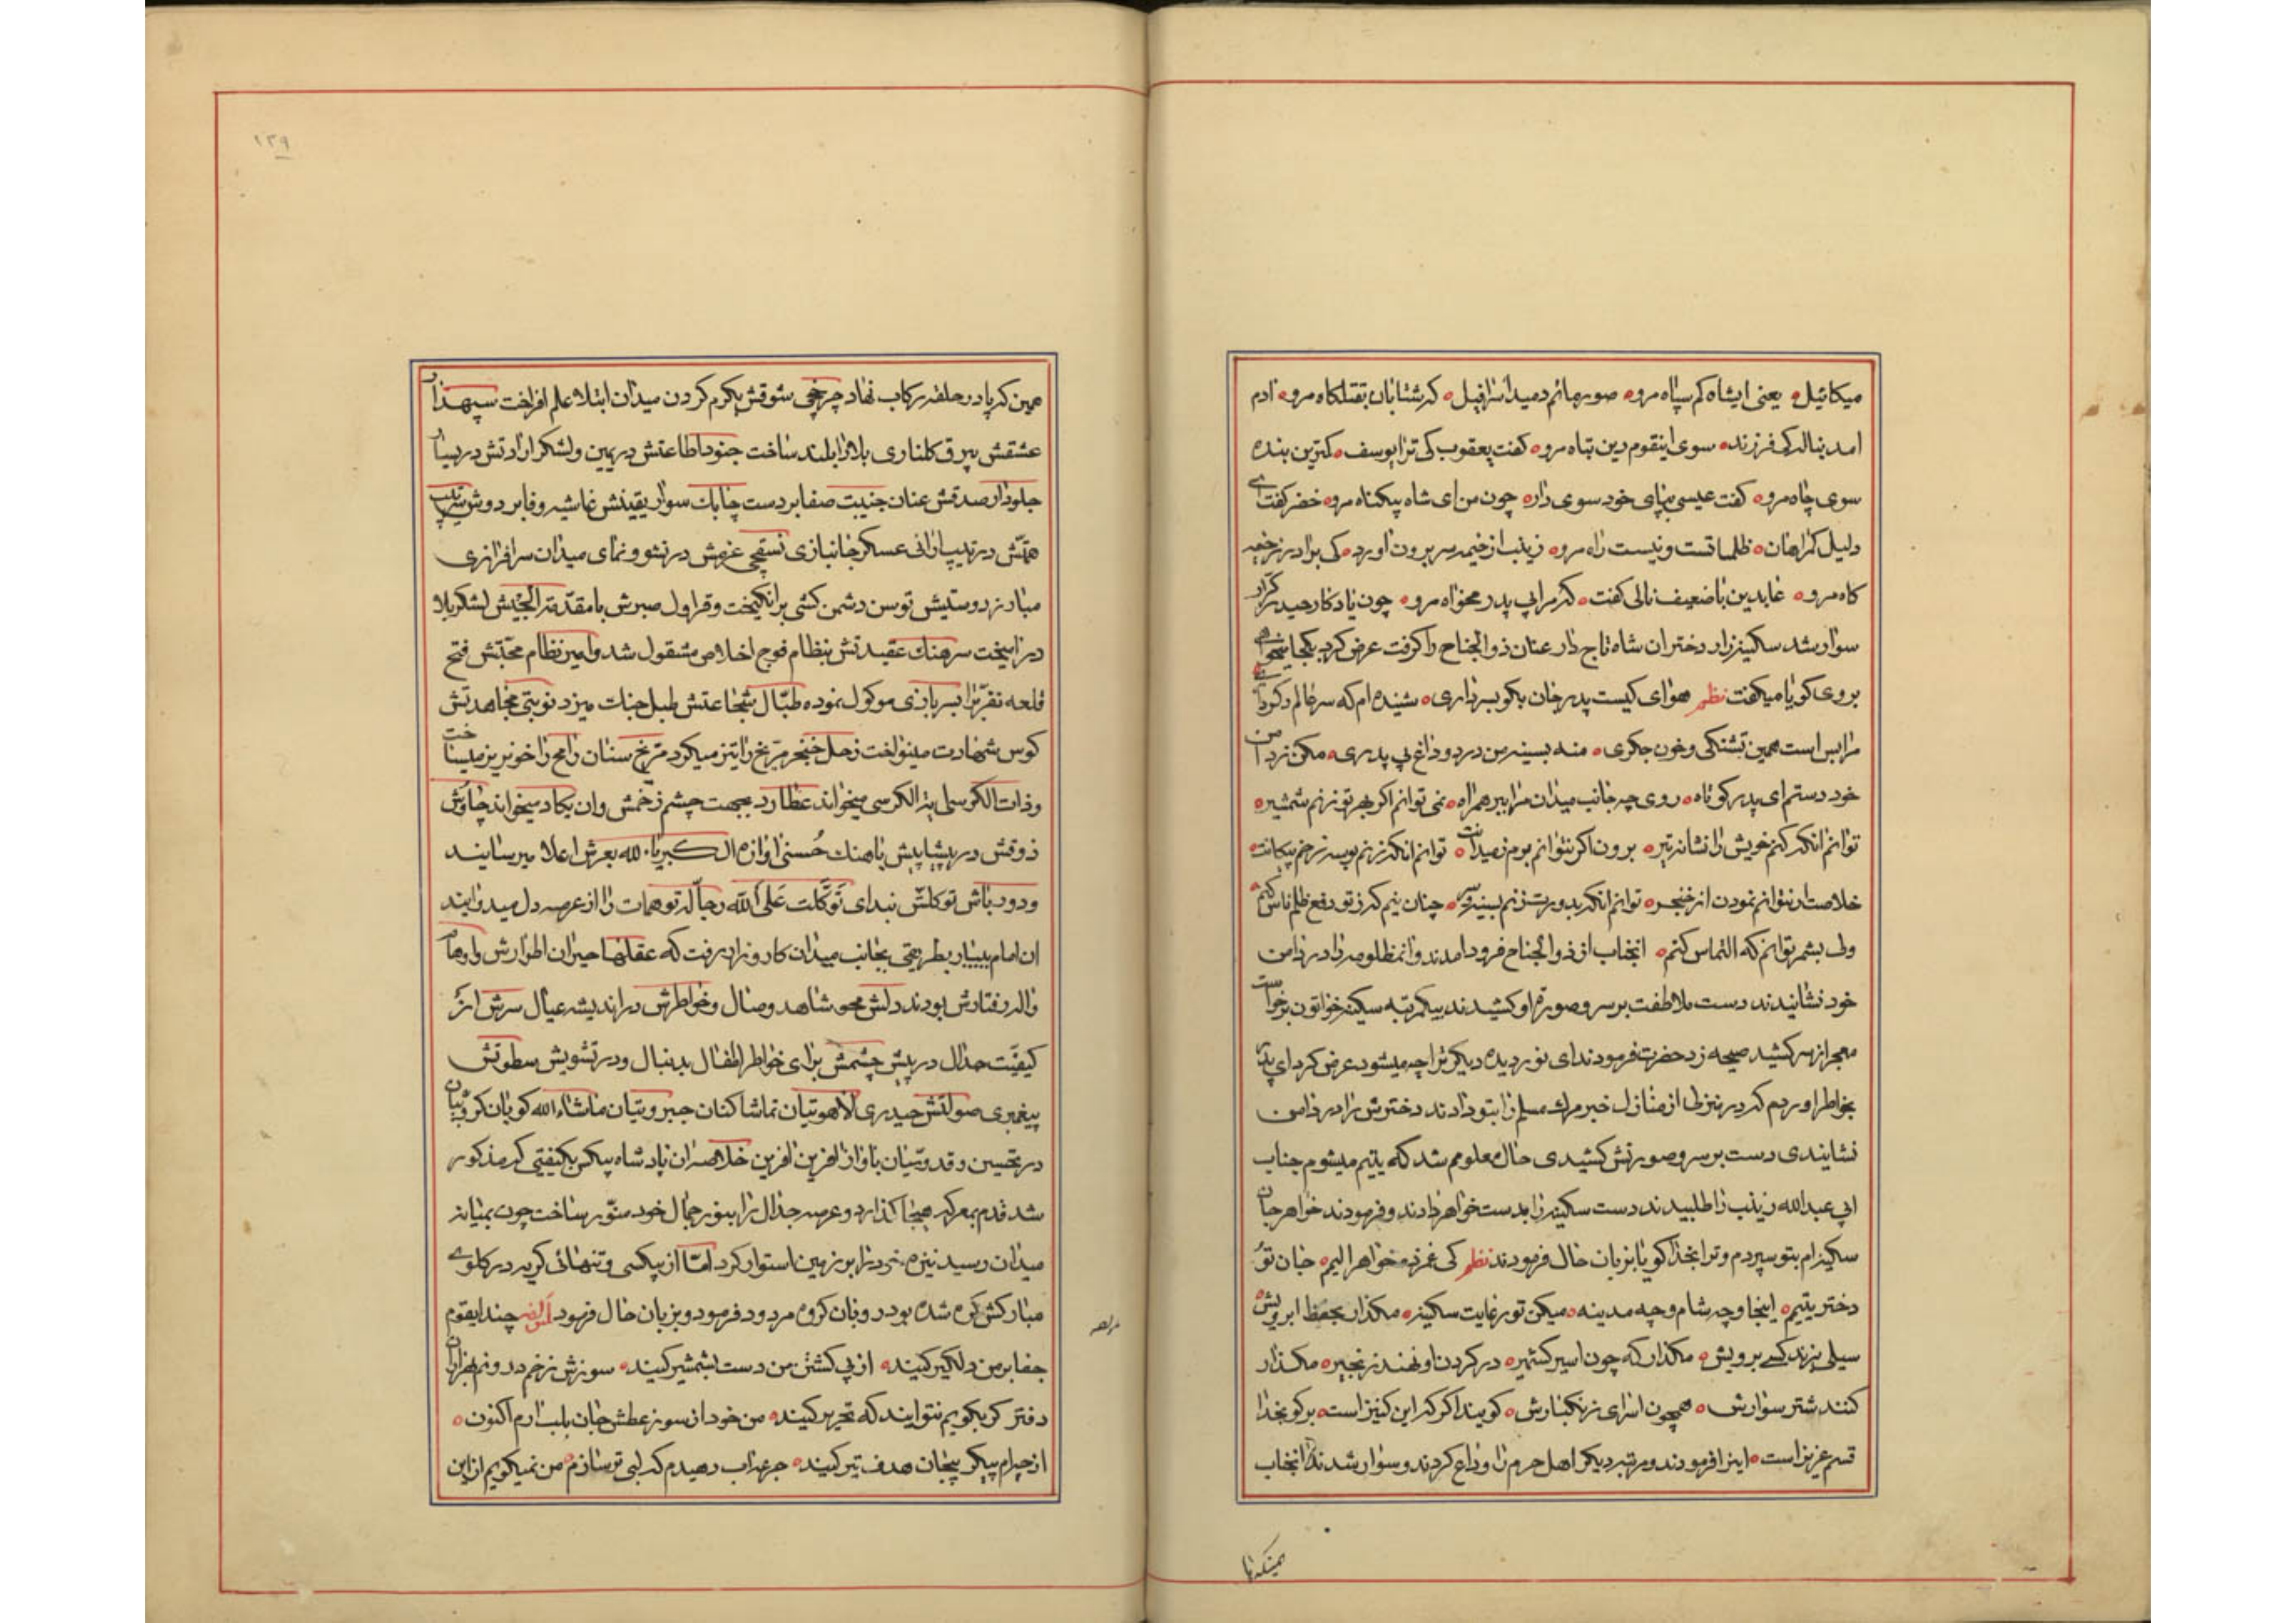 میکائیل یعنی ایشاه کم سپاه مرو صور ماتم دمید اسرافیل که شتابان بقتلگاه مرو ادم
امد بناله کی فرزند سوی اینقوم دین تباه مرو گفت یعقوب کی ترا یوسف کمترین بنده
سوی چاه مرو گفت عیسی بپای خود سوی دار چون من ای شاه بیکناه مرو خضر گفت ای
دلیل گمراهان ظلماتست و نیست راه مرو زینب از خیمه سر برون اورد کی برادر ز خیمه
کاه مرو عابدین با ضعیف نالی گفت که مرا بی پدر مخواه مرو چون یادکار حیدر کرار
سوار شد سکینه زار دختر ان شاه تاج دار عنان ذوالجناح را گرفت عرض کرد بکجا میخواهی
بروی کویا میکفت نظم هوای کیست پدر جان بکو بسر داری شنیده ام که سر
مرا بس است همین تشنکی و خون جکری منه بسینه من درد و داغ بی پدری مکن ز دامن
خود دستم ای پدر کوتاه روی چه جانب میدان مرا ببر همراه نمی توانم اکر بهر تو زنم شمشیر
توانم انکه کنم خویش را نشانه تیر برون اکر نتوانم بوم ز میدانت توانم انکه زنم بوسه زخم پیکانت
خلاصت ار نتوانم نمودن از خنجر توانم انکه بدورت زنم بسینه و سر چنان نیم که ز تو دفع ظلم ناس کنم
ولی بشمر توانم که التماس کنم انجناب از ذوالجناح فرود امدند و انمظلومه را در دامن
خود نشانیدند دست ملاطفت بر سر و صورة او کشیدند بیکمرتبه سکینه خواتون برخواست
معجر از سر کشید صیحه زد حضرت فرمودند ای نور دیده دیکر ترا چه میشود عرض کرد ای پدر
بخاطر اوردم که در منزلی از منازل خبر مرك مسلم را بتو دادند دخترش را در دامن
نشانیدی دست بر سر و صورتش کشیدی حال معلومم شد که یتیم میشوم جناب
ابی عبدالله زینب را طلبیدند دست سکینه را بدست خواهر دادند و فرمودند خواهر جان
سکینه ام بتو سپردم و ترا بخدا کویا بزبان حال فرمودند نظم کی غمزده خواهر الیم جان تو
دختر یتیم اینجا و چه شام و چه مدینه میکن تو رعایت سکینه مکذار بحفظ ابرویش
سیلی بزند کسے برویش مکذار که چون اسیر کشتیر در کردن او نهند زنجیر مکذار
کنند شتر سوارش همچون اسرای زنکبارش کویند اکر که این کنیز است برکو بخدا
قسم عزیز است اینرا فرمودند و مرتبه دیکر اهل حرم را وداع کردند و سوار شدند انجناب
همینکه پا
١٣٩
همین که پا در حلقه رکاب نهاد چرخچی شوقش بکرم کردن میدان ابتلا علم افراخت سپهدار
عشقش بیرق کلناری بلا را بلند ساخت جنود اطاعتش در یمین و لشکر ارادتش در یسار
جلودار صدقش عنان جنیبت صفا بر دست چابك سوار یقینش غاشیه وفا بر دوش
همتش در ترتیب ارائی عسکر جانبازی نسقچی عزمش در نشو و نمای میدان سرافرازی
مبارز دوستیش توسن دشمن کشی برانکیخت و قراول صبرش با مقدمة الجیش لشکر بلا
در امیخت سرهنك عقیدتش بنظام فوج اخلاص مشقول شد و امین نظام محبتش فتح
قلعه تقرّب را بسربازی موکول نموده طبّال شجاعتش طبل حیات میزد نوبتی مجاهدتش
کوس شهادت مینواخت زحل خنجر مرّیخ را تیز میکرد مرّیخ سنان رامح را خونریز میساخت
و ذات الکرسی ایة الکرسی میخواند عطارد بجهت چشم زخمش وان یکاد میخواند چاوش
ذوقش در پیشاپیش باهنك حُسنی اوازه ال کبریاء لله بعرش اعلا میرسانید
و دور باش توکلش نبدای تَوَکَّلت عَلَی الله رجاله توهمات را از عرصه دل میدوانید
ان امام بییار بطریقی بجانب میدان کارزار رفت که عقلها حیران اطوارش و اوهام
واله رفتارش بودند دلش محو شاهد وصال و خواطرش در اندیشه عیال سرش از
کیفیّت جدال در پیش چشمش برای خواطر اطفال بدنبال و در تشویش سطوتش
پیغمبری صولتش حیدری لاهوتیان تماشا کنان جبروتیان ماشاءالله کویان کروبیان
در تحسین و قدوسیان باواز افرین افرین خلاصه ان پادشاه بیکس بکیفیتی که مذکور
شد قدم بمعرکه هیجا کذارد و عرصه جدال را بنور جمال خود منوّر ساخت چون بمیانه
میدان رسید نیزه خود را بر زمین استوار کرد امّا از بیکسی و تنهائی کریه در کلوے
مبارکش کره شده بود رو بان کروه مردود فرمود و بزبان حال فرمود لمؤلفه چند ایقوم
جفا بر من دلکیر کنید از پی کشتن من دست بشمشیر کنید سوزش زخم درونم بهزاران
دفتر کر بکویم نتوانید که تحریر کنید من خود از سوز عطش جان بلب ارم اکنون
از چه ام پیکر بیجان هدف تیر کنید جرعه اب دهیدم که لبی تر سازم من نمیکویم از این